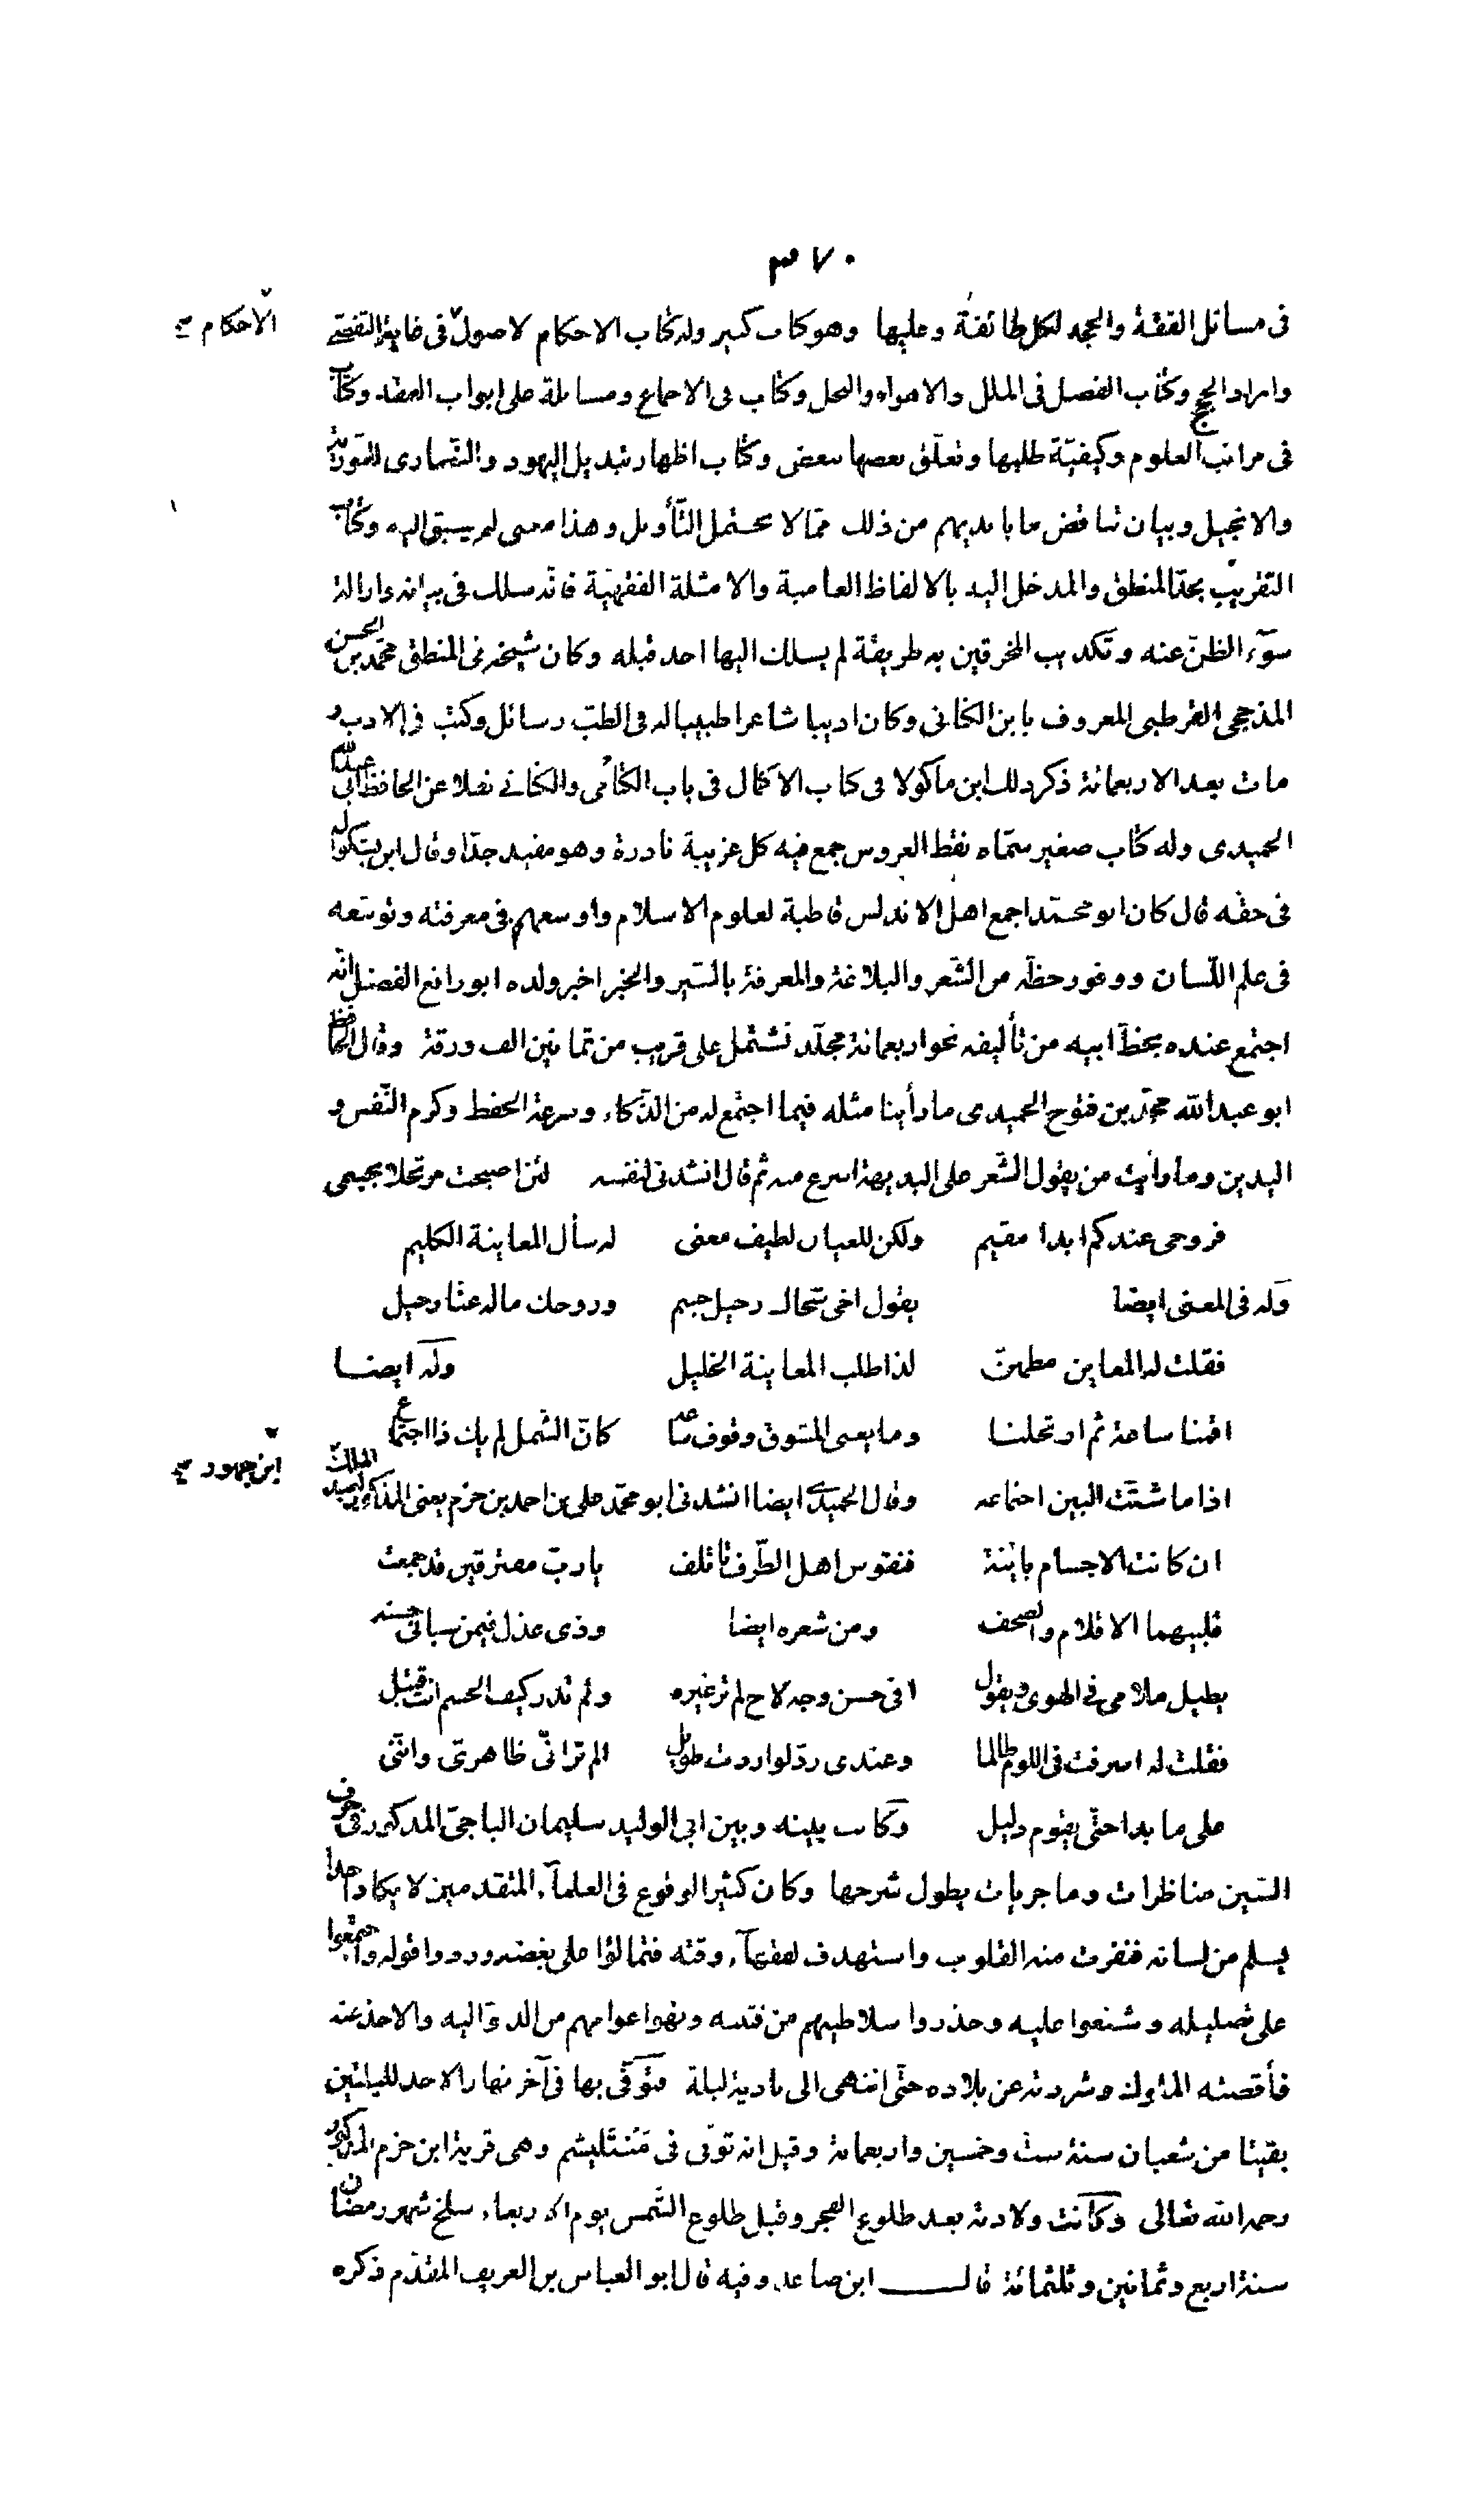 ٣٧٠
فى مسائل الفقة والحجه لكل طائفة وعليها وهو كاب كبير وله كتاب الاحكام لاصول فى غاية التقصّى
الاحكام صح
وايراد الحجج وكتاب الفصل فى الملل والاهواء والنحل وكتاب فى الاجماع ومسائله على ابواب الفقه وكتاب
فى مراتب العلوم وكيفيّة طلبها وتعلّق بعضها ببعض وكتاب اظهار تبديل اليهود والنّصارى للتّورية
والانجيل وبيان تناقض ما بايديهم من ذلك ممّا لا يحتمل التّأويل وهذا معنى لم يسبق اليه وكتاب
التقريب بحدّ المنطق والمدخل اليه بالالفاظ العامية والامثلة الفقهيّة فانّه سلك فى بيانه وازالة
سوء الظنّ عنه وتكذيب المخرقين به طريقة لم يسلك اليها احد قبله وكان شيخه فى المنطق محمّد بن الحسن
المذحجى القرطبى المعروف بابن الكتانى وكان اديبا شاعرا طبيبا له فى الطبّ رسائل وكتب فى الادب و
مات بعد الاربعمائة ذكر ذلك ابن ماكولا فى كاب الاكمال فى باب الكتامى والكتانى نقلا عن الحافظ ابى عبد الله
الحميدى وله كتاب صغير سمّاه نقط العروس جمع فيه كل غريبة نادرة وهو مفيد جدّا وقال ابن بشكوال
فى حقّه قال كان ابو محمّد اجمع اهل الاندلس قاطبة لعلوم الاسلام واوسعهم فى معرفته وتوسّعه
فى علم اللّسان ووفور حظّه من الشّعر والبلاغة والمعرفة بالسّير والخبر اخبر ولده ابو رافع الفضل انّه
اجتمع عنده بخطّ ابيه من تأليفه نحو اربعمائة مجلّد تشتمل على قريب من ثمانين الف ورقة وقال الحافظ
ابو عبد الله محمّد بن فتوح الحميدى ما رأينا مثله فيما اجتمع له من الذّكاء وسرعة الحفظ وكرم النّفس و
اليدين وما رأيت من يقول الشّعر على البديهة اسرع منه ثم قال انشدنى لنفسه لئن اصبحت مرتحلا بجسمى
فروحى عندكم ابدا مقيم ولكن للعيان لطيف معنى له سأل المعاينة الكليم
وله فى المعنى ايضا يقول اخى شجاك رحيل جسم وروحك ماله عنّا رحيل
فقلت له المعاين مطمئنّ لذا طلب المعاينة الخليل وله ايضا
اقمنا ساعة ثم ارتحلنا وما يغنى المشوق وقوف ساعه كانّ الشّمل لم يك ذا اجتماع
اذا ما شتّت البين اجتماعه وقال الحميدى ايضا انشدنى ابو محمّد على بن احمد بن حزم يعنى المذكور لعبد الملك
ابن جهور صح
ان كانت الاجسام بائنة فنفوس اهل الظّرف تاتلف يا ربّ مفترقين قد جمعت
قلبيهما الاقلام والصحف ومن شعره ايضا وذى عذل فيمن سبانى حسنه
يطيل ملامى فى الهوى ويقول افى حسن وجه لاح لم تر غيره ولم تدر كيف الجسم انت قتيل
فقلت له اسرفت فى اللوم ظالما وعندى ردّ لو اردت طويل الم تر انّى ظاهرىّ وانّنى
على ما بدا حتّى يقوم دليل وكانت بينه وبين ابى الوليد سليمان الباجىّ المذكور فى حرف
السّين مناظرات وماجريات يطول شرحها وكان كثير الوقوع فى العلمآء المتقدمين لا يكاد احدا
يسلم من لسانه فنفرت منه القلوب واستهدف لفقهآء وقته فتمالؤا على بغضه وردوا قوله واجتمعوا
على تضليله وشنعوا عليه وحذروا سلاطينهم من فتنه ونهوا عوامهم من الدنوّ اليه والاخذ عنه
فأقصته الملوك وشردته عن بلاده حتّى انتهى الى بادية لبلة فتوفّى بها فى آخر نهار الاحد لليلتين
بقيتا من شعبان سنة ستّ وخمسين واربعمائة وقيل انه توفّى فى مَنتَليشم وهى قرية ابن حزم المذكور
رحمه الله تعالى وكانت ولادته بعد طلوع الفجر وقبل طلوع الشّمس يوم الاربعاء سلخ شهر رمضان
سنة اربع وثمانين وثلثمائة قال ابن صاعد وفيه قال ابو العباس بن العريف المقدّم ذكره